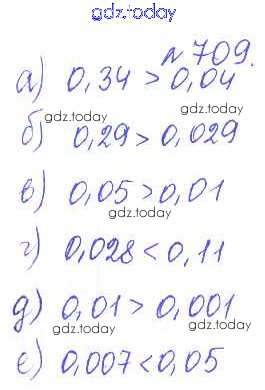 gdz.today
№ 709.
а) 0,34 > 0,04
gdz.today
б) 0,29 > 0,029
gdz.today
в) 0,05 > 0,01
gdz.today
г) 0,028 < 0,11
gdz.today
д) 0,01 > 0,001
gdz.today
е) 0,007 < 0,05